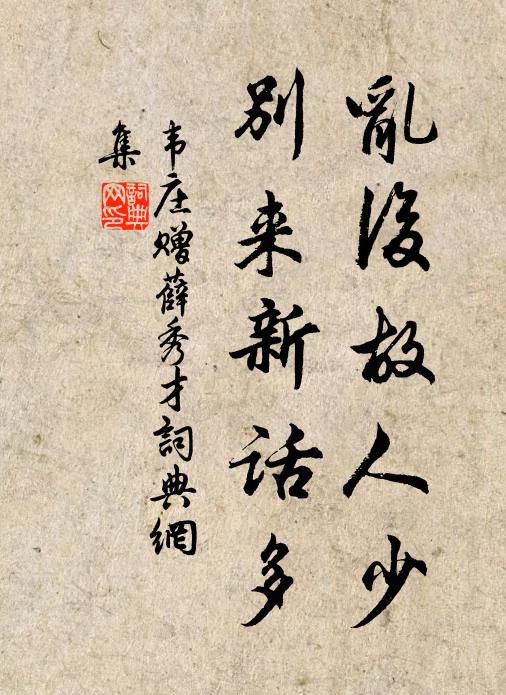 亂後故人少
别来新话多
韦庄赠薛秀才詞典網
集
詞典网印